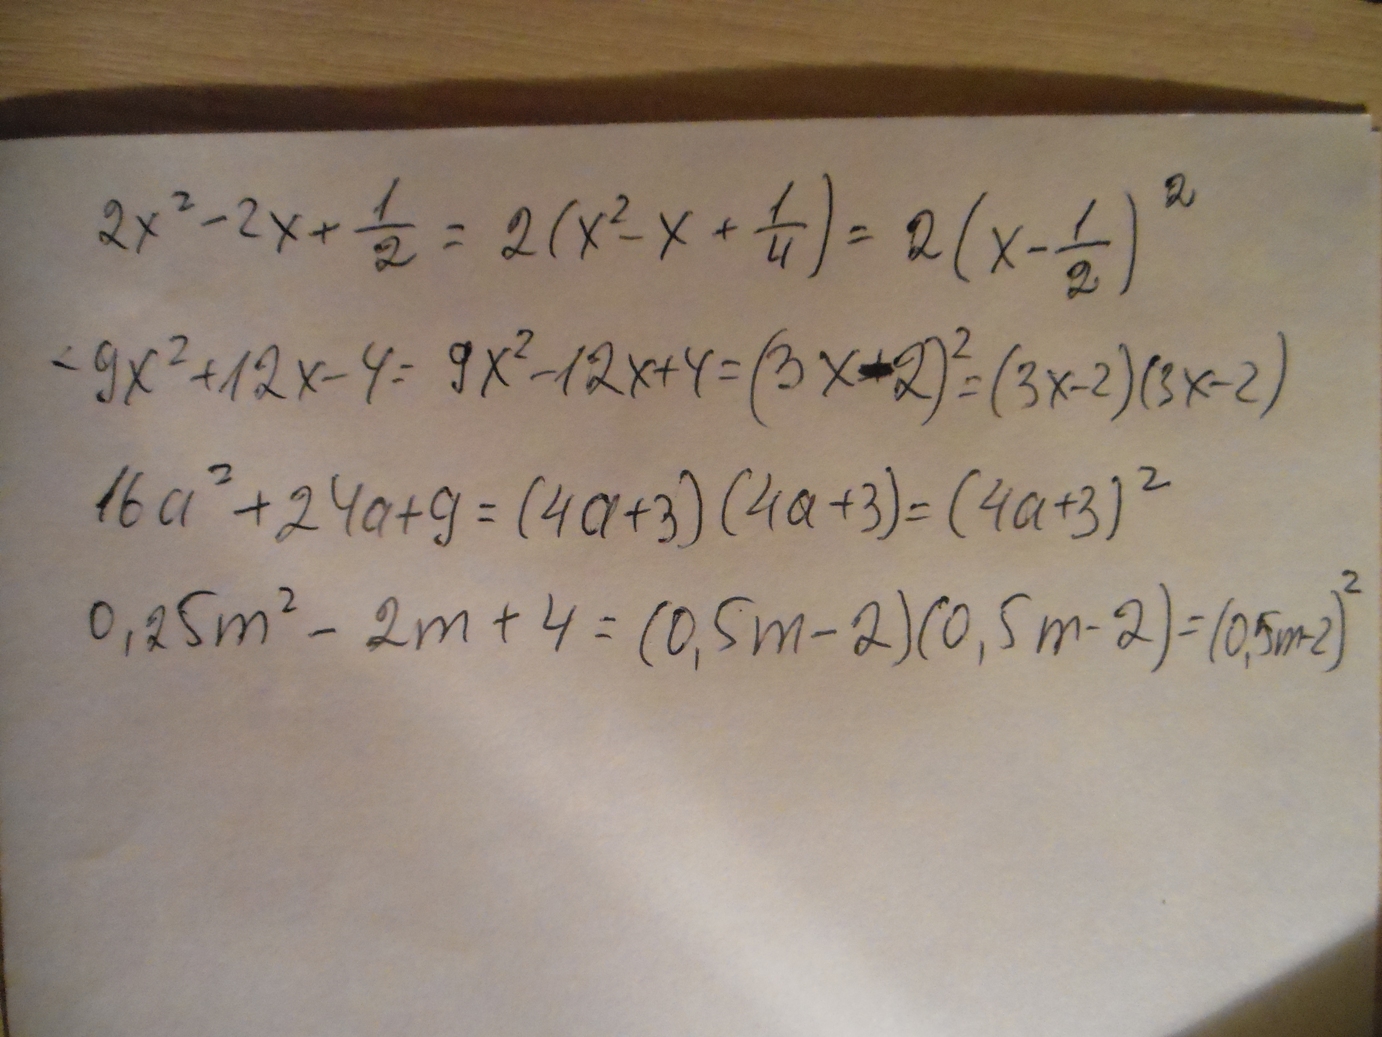 2x² - 2x + 1/2 = 2(x² - x + 1/4) = 2(x - 1/2)²
-9x² + 12x - 4 = 9x² - 12x + 4 = (3x - 2)² = (3x - 2)(3x - 2)
16a² + 24a + 9 = (4a + 3)(4a + 3) = (4a + 3)²
0,25m² - 2m + 4 = (0,5m - 2)(0,5m - 2) = (0,5m - 2)²